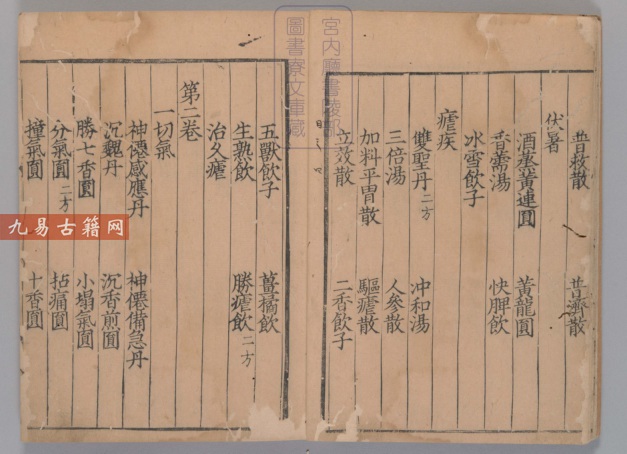 普救散　普濟散
伏暑
酒蒸黃連圓　黃龍圓
香薷湯　快脾飲
冰雪飲子
瘧疾
雙聖丹二方　沖和湯
三倍湯　人參散
加料平胃散　驅瘧散
立效散　二香飲子
五獸飲子　薑橘飲
生熟飲　勝瘧飲二方
治久瘧
第二卷
一切氣
神僊感應丹　神僊備急丹
沉魏丹　沉香煎圓
勝七香圓　小塌氣圓
分氣圓二方　拈痛圓
撞氣圓　十香圓
宮内廳書陵部
圖書寮文庫藏
九易古籍网